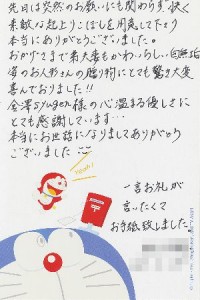 先日は突然のお願いにも関わらず、快く
素敵な起上りこぼしを用意して下さり
本当にありがとうございました。
おかげさまで弟夫妻もかわいらしい白無垢
姿のお人形さんの贈り物にとても驚き大変
喜んでおりました!!
金澤syugen様の心温まる優しさに
とても感謝しています…
本当にお世話になりましてありがとう
ございました
Yeah!!
一言お礼が
言いたくて
お手紙致しました。